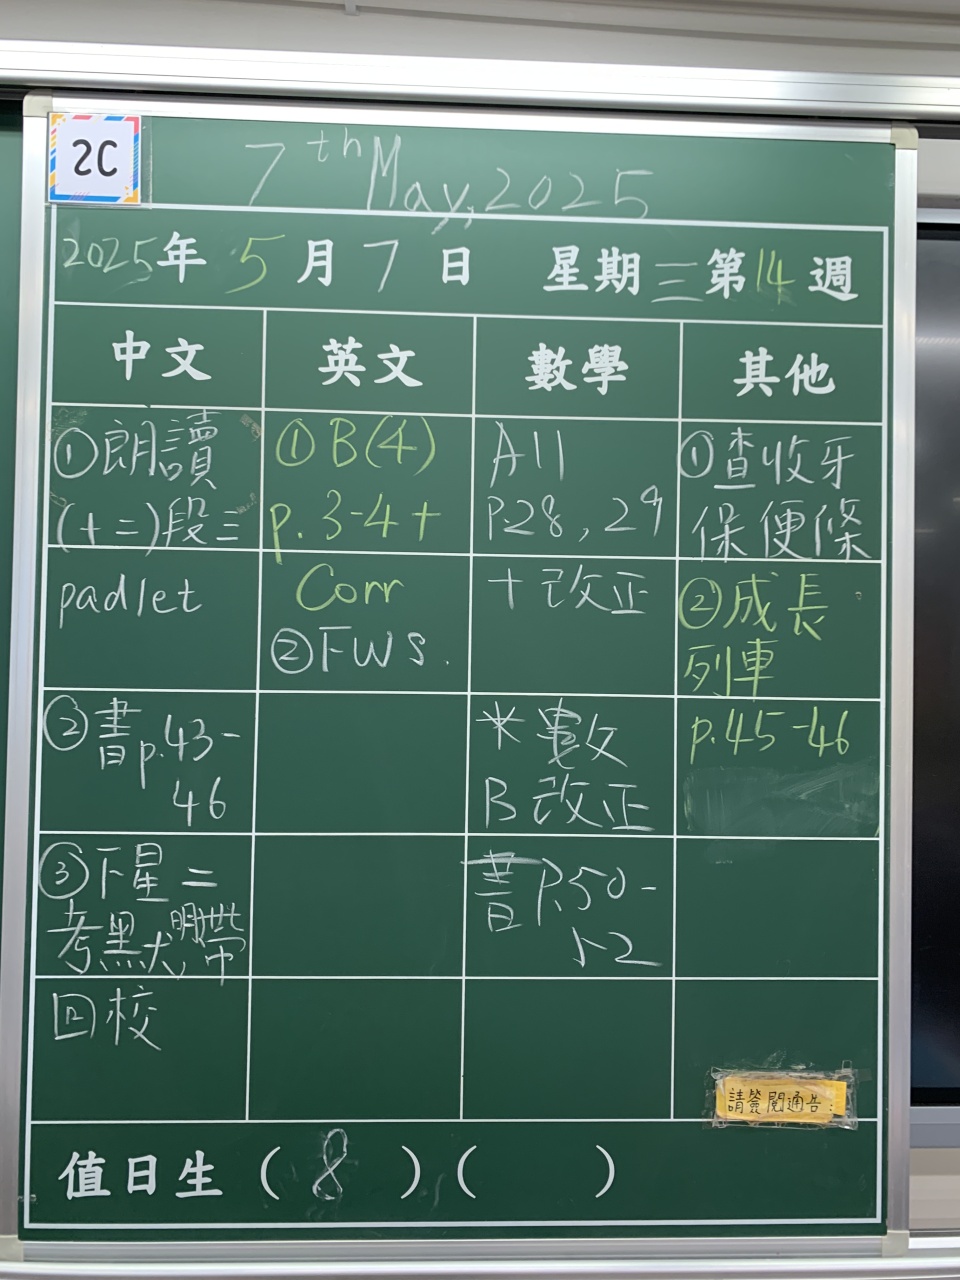 2C
7th May, 2025
2025年5月7日 星期三 第14週
中文
①朗讀
(十二)段三
padlet
②書p.43-
46
③下星二
考默,明帶
回校
英文
①B(4)
p.3-4+
Corr
②FWS.
數學
All
P.28, 29
+改正
*數
B改正
書P.50-
52
其他
①查收牙
保便條
②成長
列車
p.45-46
請簽閱通告:
值日生(8)( )